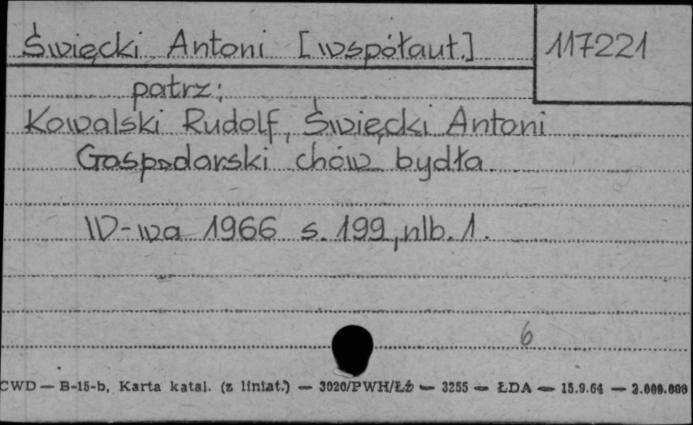 Święcki Antoni [współaut.] 117221
patrz:
Kowalski Rudolf, Święcki Antoni
Gospodarski chów bydła.
W-wa 1966 s. 199, nlb. 1.
6
CWD — B-15-b, Karta katal. (z liniat.) — 3020/PWH/Łź — 3255 — ŁDA — 15.9.64 — 2.000.000